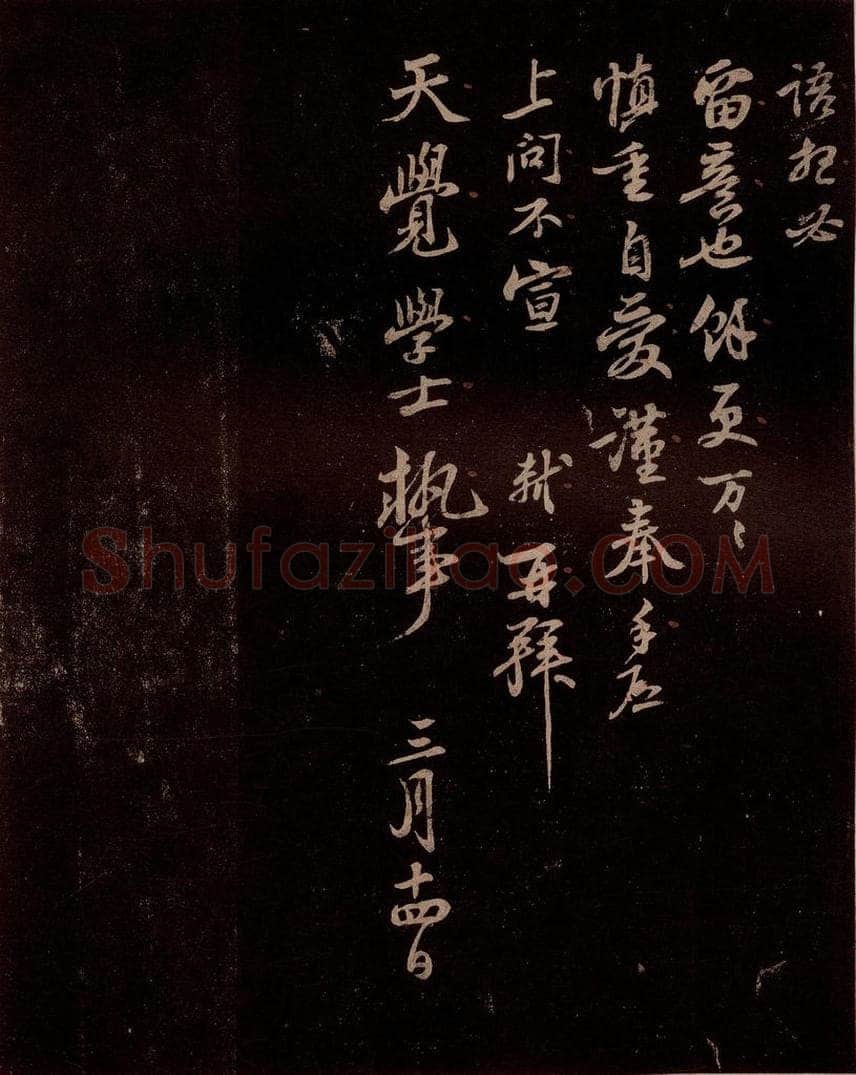 語想必
留意也餘更万〻
慎重自愛謹奉手啓
上問不宣 軾再拜
天覺學士執事 三月十四日
Shufaziliao.COM